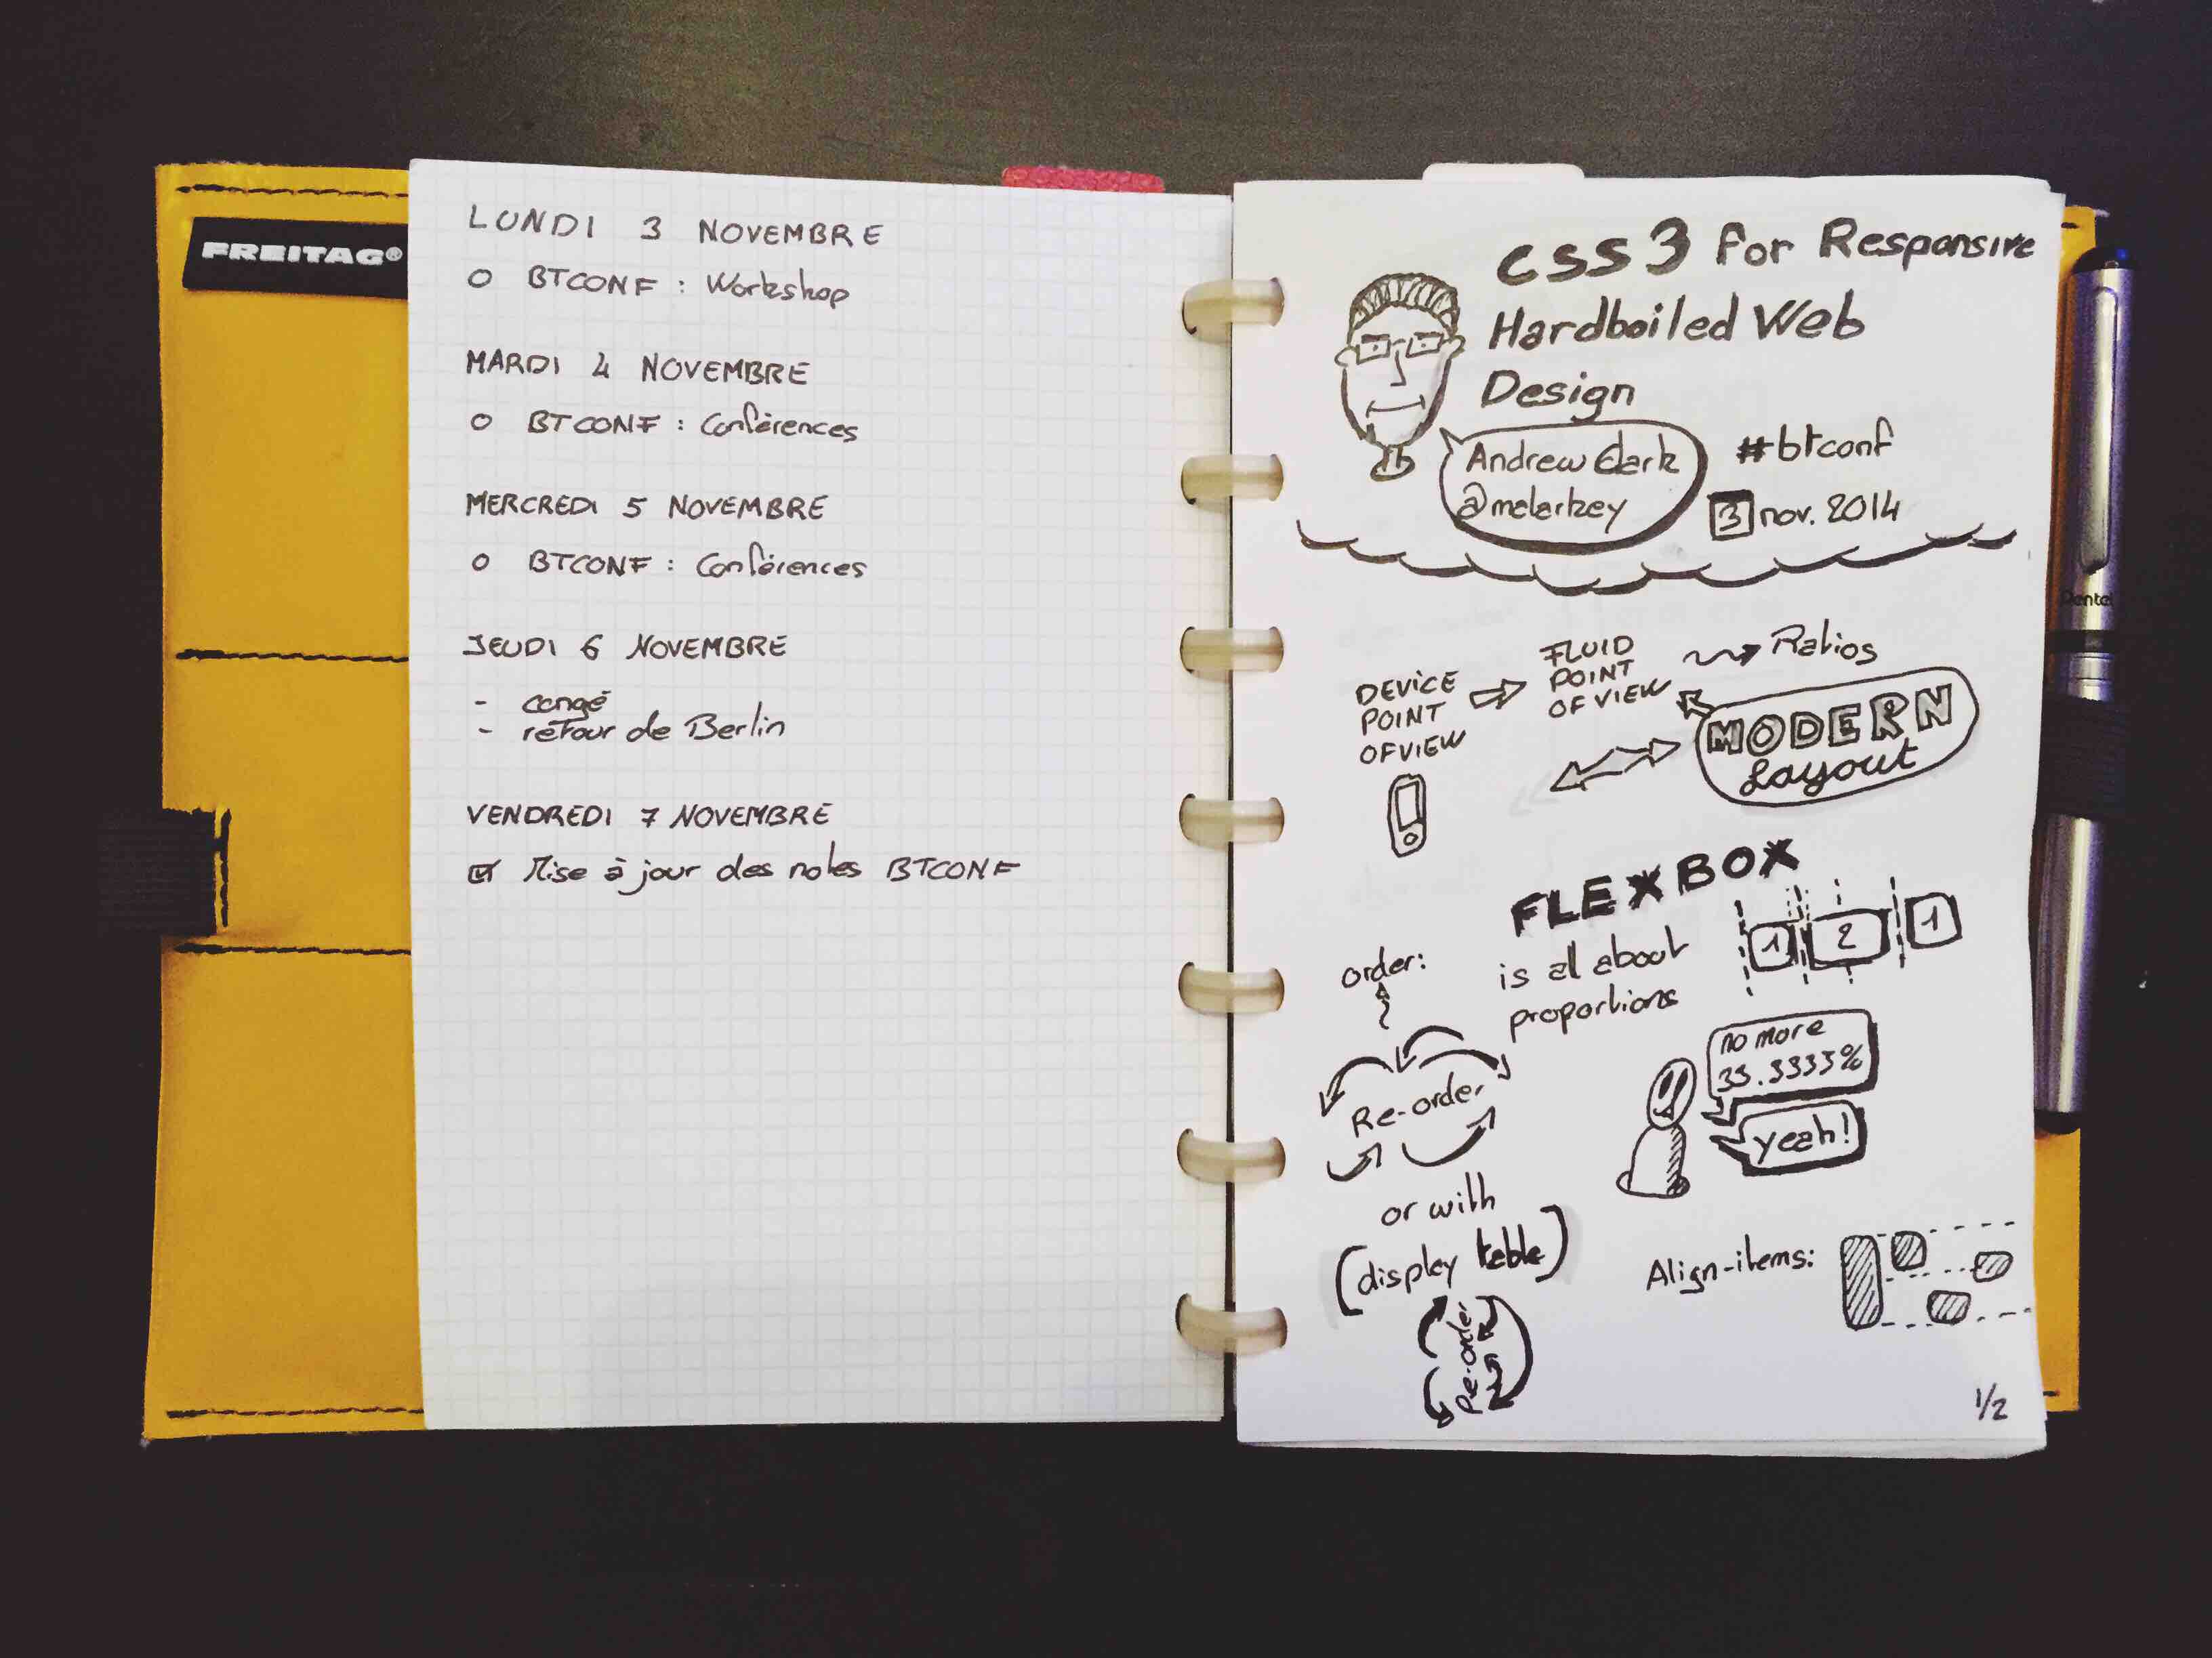 FREITAG®
LUNDI 3 NOVEMBRE
O BTCONF : Workshop
MARDI 4 NOVEMBRE
O BTCONF : Conférences
MERCREDI 5 NOVEMBRE
O BTCONF : Conférences
JEUDI 6 NOVEMBRE
- congé
- retour de Berlin
VENDREDI 7 NOVEMBRE
☑ Mise à jour des notes BTCONF
CSS3 for Responsive
Hardboiled Web
Design
Andrew Clark
@malarkey
#btconf
3 nov. 2014
DEVICE
POINT
OF VIEW
FLUID
POINT
OF VIEW
Ratios
MODERN
Layout
FLEXBOX
is al about
proportions
1 2 1
order:
Re-order
or with
(display table)
Re-order
no more
33.3333%
yeah!
Align-items:
1/2
Pentel